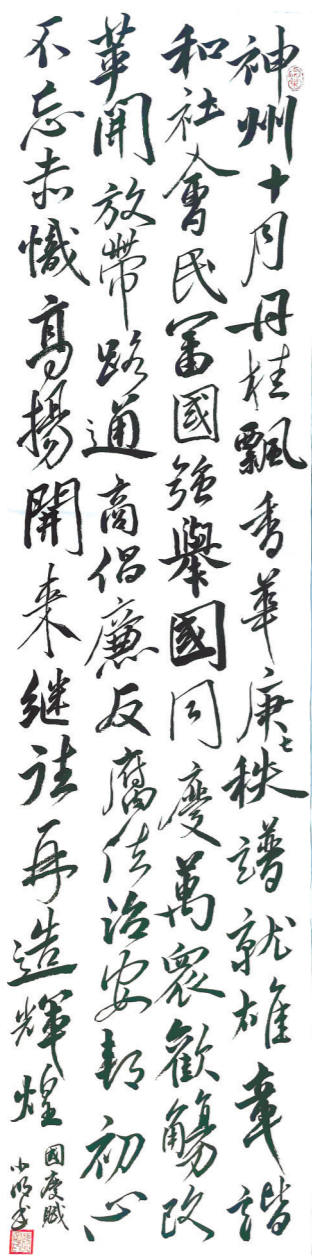 神州十月丹桂飄香華庚七秩譜就雄章諧
和社會民富國強舉國同慶萬衆歡觴改
革開放帶路通商倡廉反腐法治安邦初心
不忘赤幟高揚開来继往再造輝煌
國慶賦